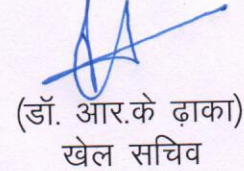 (डॉ. आर.के ढ़ाका)
खेल सचिव